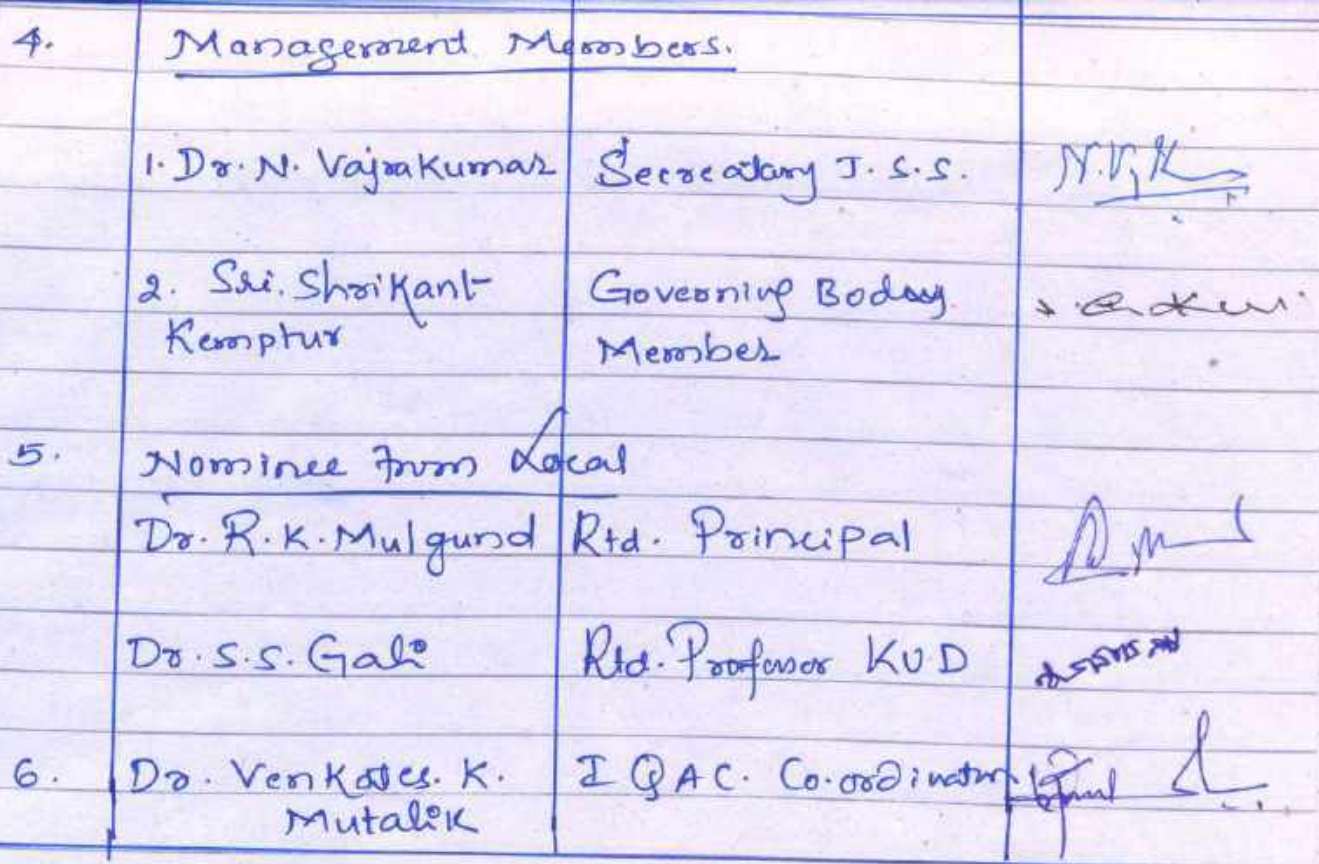 4. Management Members.
1. Dr. N. VajraKumar Secreatary J.S.S. N.V.K
2. Sri. ShriKant Governing Boday
Kemptur Member
5. Nominee from Local
Dr. R.K. Mulgund Rtd. Principal
Dr. S.S. Gali Rtd. Professor KUD
6. Dr. Venkates. K. IQAC. Co.ordinator
Mutalik